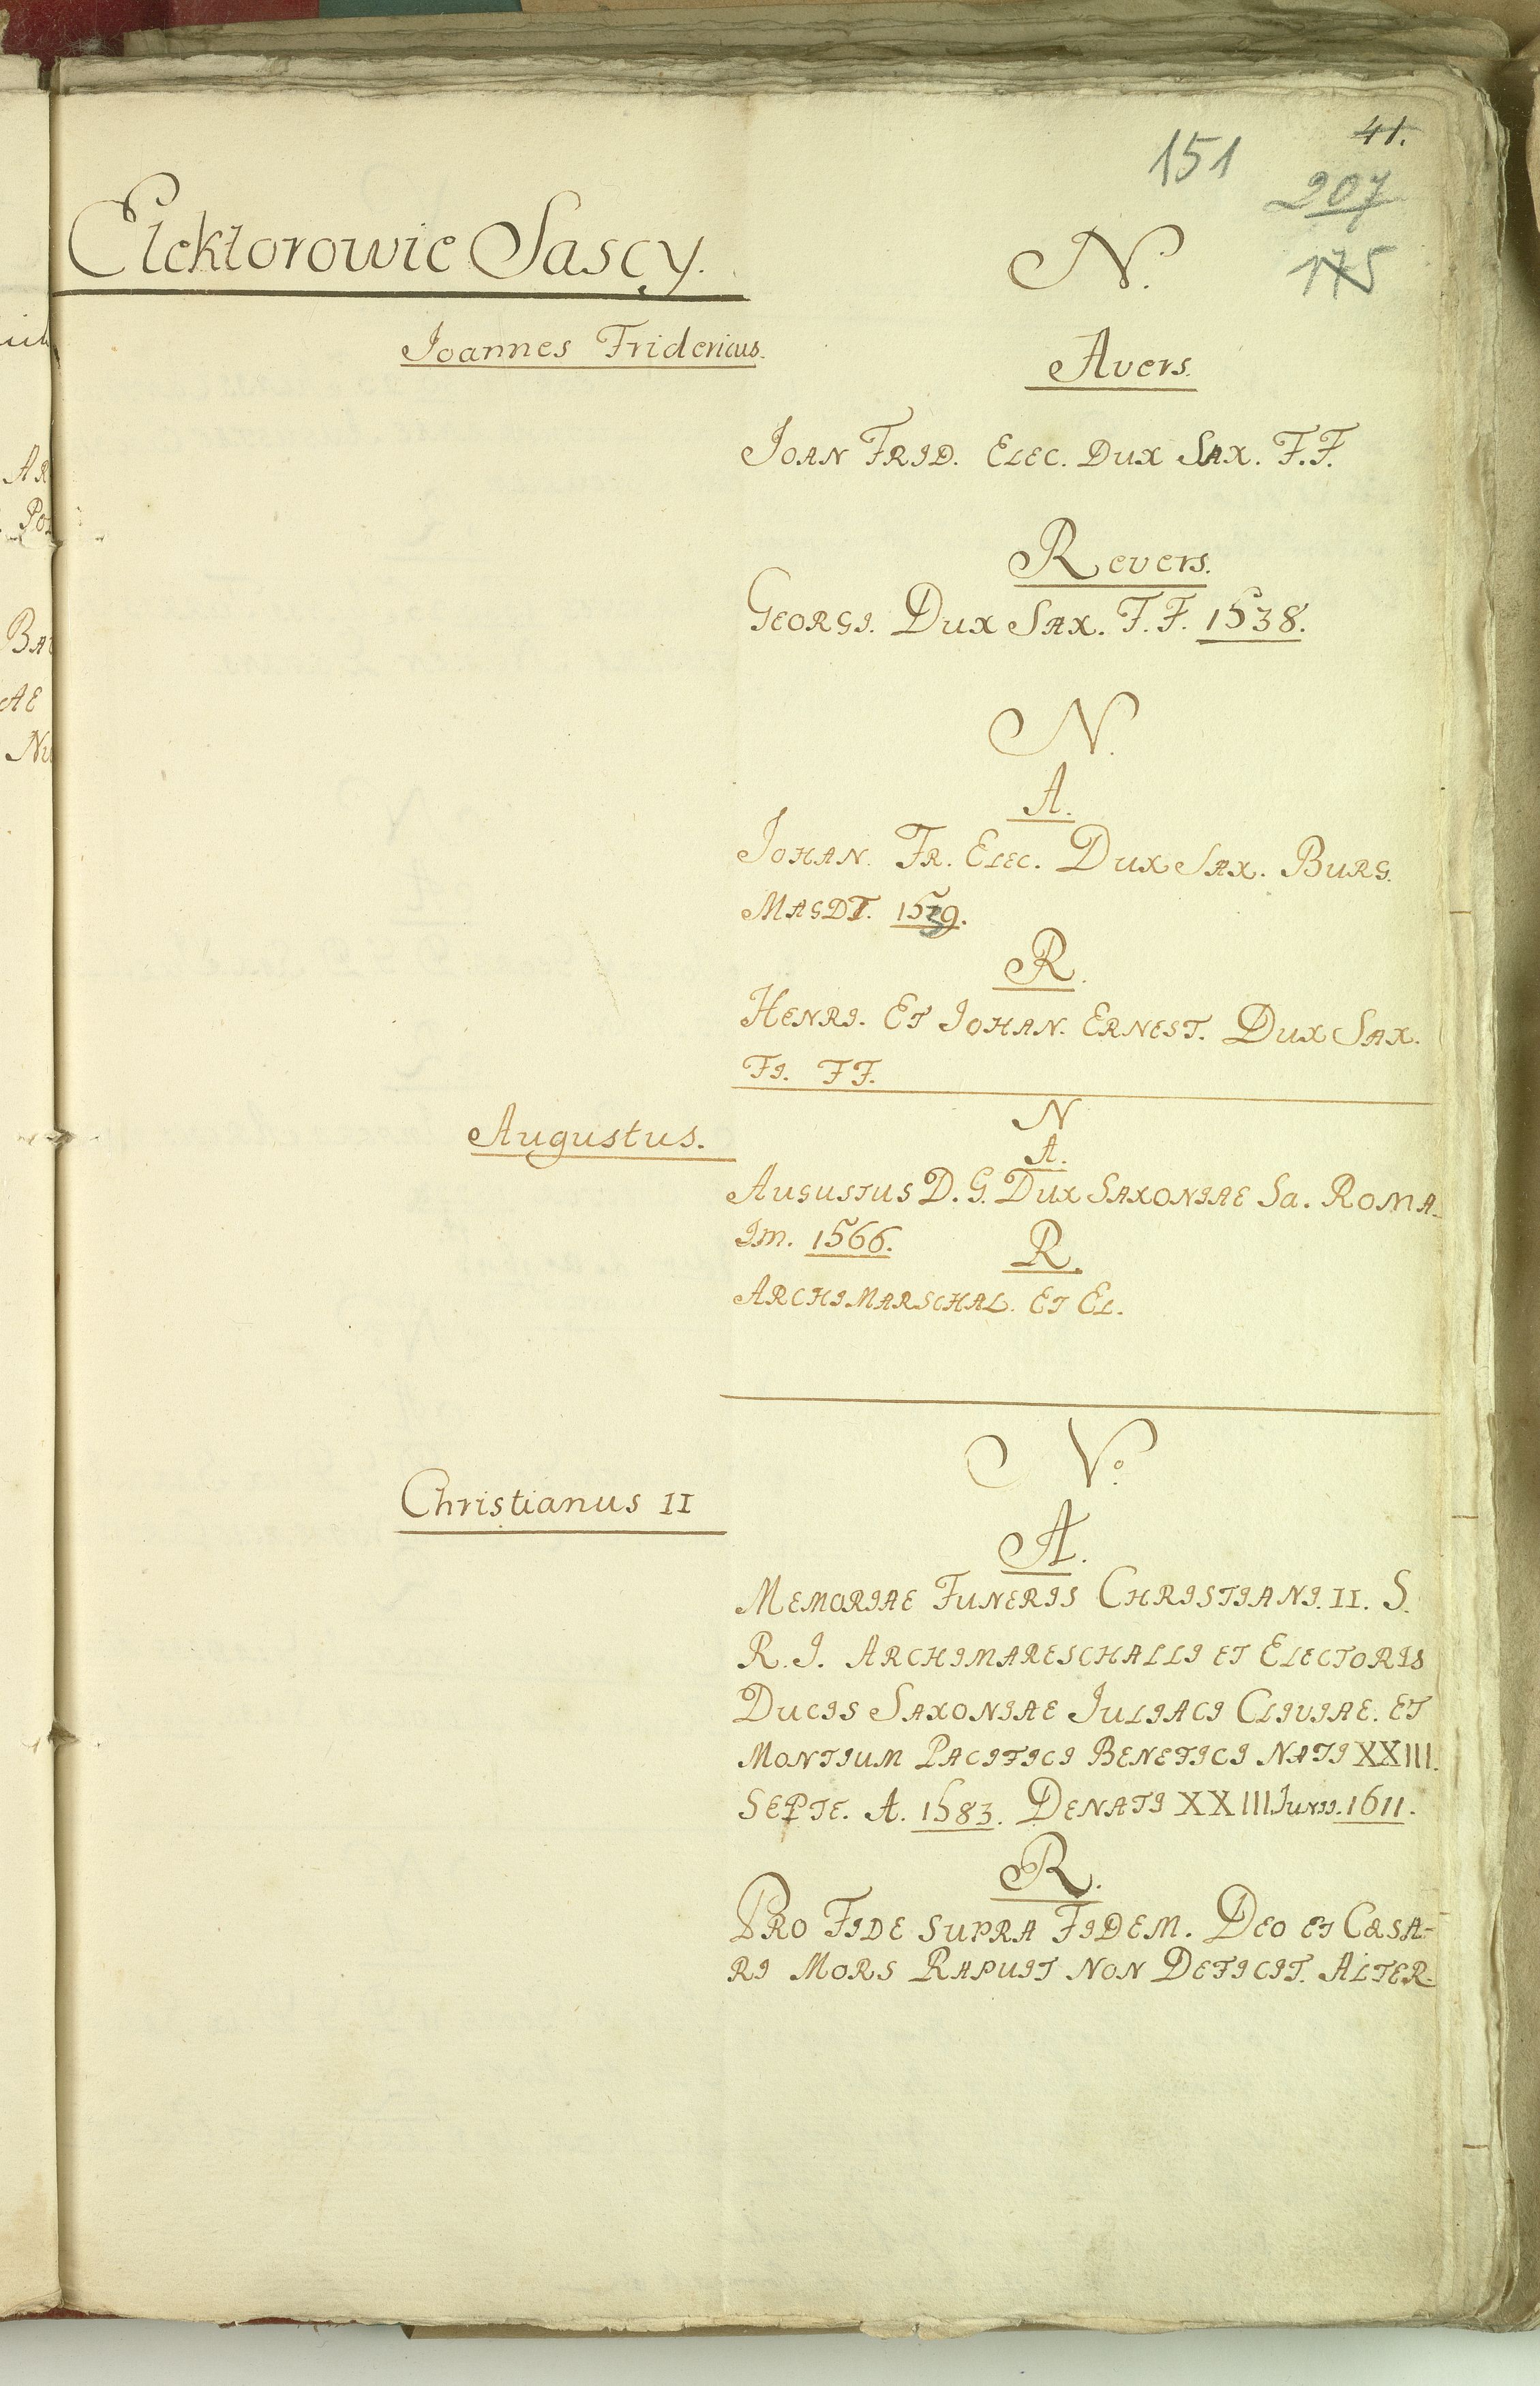 41.
151
207
175
Elektorowie Sascy.
N.
Joannes Fridericus.
Avers.
JOAN FRID. ELEC. DUX SAX. F.F.
Revers.
GEORGI. DUX SAX. F.F. 1538.
N.
A.
JOHAN. FR. ELEC. DUX SAX. BURG.
MAGDT. 1539.
R.
HENRI. ET JOHAN. ERNEST. DUX SAX.
FI. FF.
N
Augustus.
A.
AUGUSTUS D. G. DUX SAXONIAE Sa. ROMA-
IM. 1566.
R.
ARCHIMARSCHAL. ET EL.
No.
Christianus II
A.
MEMORIAE FUNERIS CHRISTIANI. II. S.
R. I. ARCHIMARESCHALLI ET ELECTORIS
DUCIS SAXONIAE JULIACI CLIVIAE. ET
MONTIUM PACIFICI BENEFICI NATI XXIII.
SEPTE. A. 1583. DENATI XXIII Junii. 1611.
R.
PRO FIDE SUPRA FIDEM. DEO ET CÆSA-
RI MORS RAPUIT NON DEFICIT. ALTER.
AR
Po
BA
AE